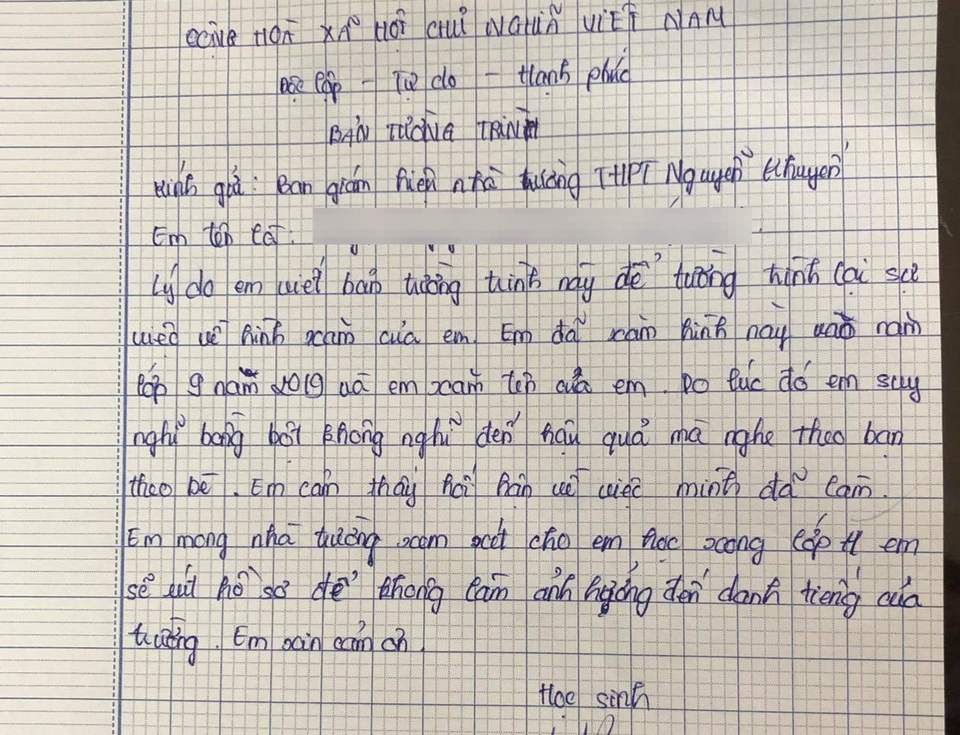 CỘNG HOÀ XÃ HỘI CHỦ NGHĨA VIỆT NAM
Độc lập - Tự do - Hạnh phúc
BẢN TƯỜNG TRÌNH
Kính gửi: Ban giám hiệu nhà trường THPT Nguyễn Khuyến
Em tên là:
Lý do em viết bản tường trình này để tường trình lại sự
việc về hình xăm của em. Em đã xăm hình này vào năm
lớp 9 năm 2019 và em xăm tên của em. Do lúc đó em suy
nghĩ bồng bột không nghĩ đến hậu quả mà nghe theo bạn
theo bè. Em cảm thấy hối hận về việc mình đã làm.
Em mong nhà trường xem xét cho em học xong lớp 11 em
sẽ rút hồ sơ để không làm ảnh hưởng đến danh tiếng của
trường. Em xin cảm ơn.
Học sinh